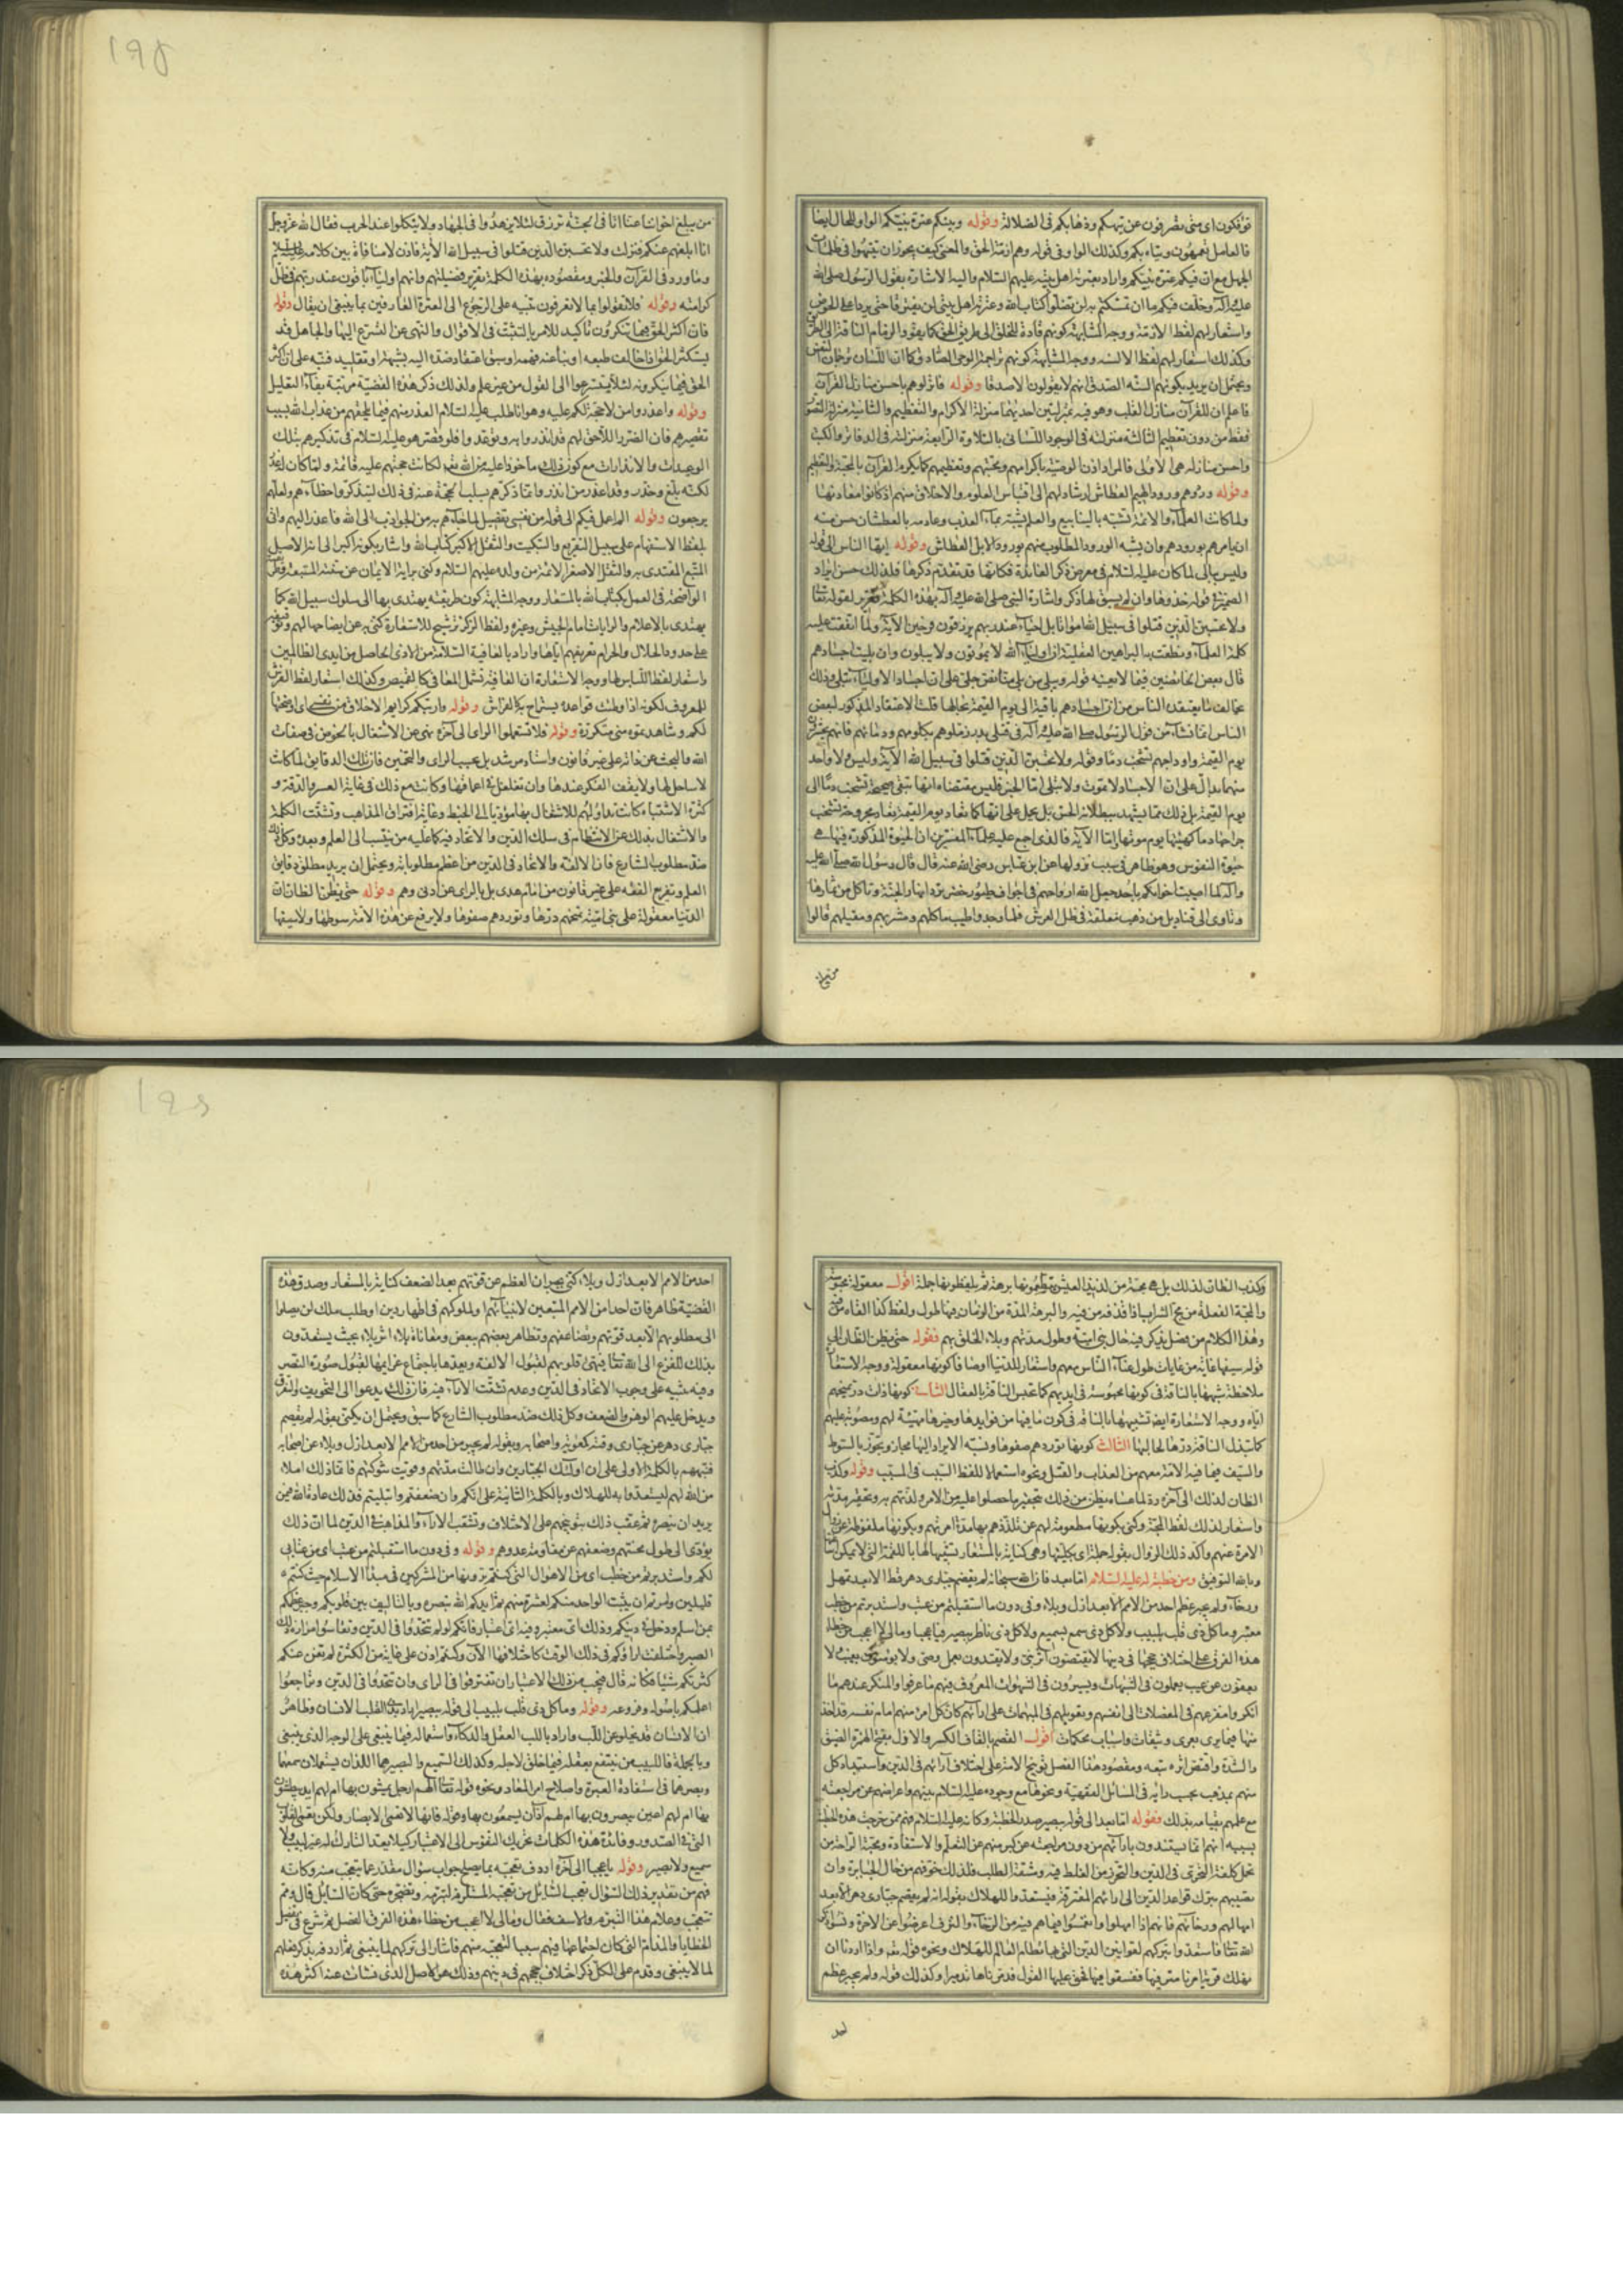 توفكون اى متى تصرفون عن تيهكم وذهابكم فى الضلالة وقوله وبينكم عترة نبيكم الواو للحال ايضا
فالعامل تعمهون وبتاه بكم وكذلك الواو فى قوله وهم ازمة الحق والمعنى كيف يجوز ان تتيهوا فى ظلمات
الجهل مع ان فيكم عترة نبيكم واراد بعترته اهل بيته عليهم السلام واليه الاشارة بقول الرسول صلى الله
عليه وآله وخلفت فيكم ما ان تمسكتم به لن تضلوا كتاب الله وعترتى اهل بيتى لن يفترقا حتى يردا على الحوض
واستعار لهم لفظ الازمة ووجه المشابهة كونهم قادة للخلق الى طريق الحق كما يقود الزمام الناقة الى الطريق
وكذلك استعار لهم لفظ الالسنة ووجه المشابهة كونهم تراجمة الوحى الصادق كما ان اللسان ترجمان النفس
ويحتمل ان يريد بكونهم السنة الصدق انهم لا يقولون الا صدقا وقوله فانزلوهم باحسن منازل القرآن
فاعلم ان للقرآن منازل القلب وهو فيه بمنزلتين احديهما منزلة الاكرام والتعظيم والثانية منزلة التصور
فقط من دون تعظيم الثالثة منزلته فى الوجود اللسانى بالتلاوة الرابعة منزلته فى الدفاتر والكتب
واحسن منازله هى الاولى فالمراد اذن الوصية باكرامهم ومحبتهم وتعظيمهم كما يكرم القرآن بالمحبة والتعظيم
وقوله وردوهم ورود الهيم العطاش ارشاد لهم الى اقتباس العلوم والاخلاق منهم اذ كانوا معادنها
ولما كانت العلماء والائمة تشبه بالينابيع والعلم يشبه بماء العذب وعادمه بالعطشان حسن منه
ان يامرهم بورودهم وان يشبه الورود المطلوب منهم بورود الابل العطاش وقوله ايها الناس الى قوله
وليس ببالى لما كان عليه السلام فى معرض ذكر الفائدة فكانها قد تقدم ذكرها فلذلك حسن ايراد
الضمير فى قوله خذوها وان لم يسبق لها ذكر واشارة النبى صلى الله عليه وآله بهذه الكلمة تقرير لقوله تعالى
ولا تحسبن الذين قتلوا فى سبيل الله امواتا بل احياء عند ربهم يرزقون فرحين الآية ولما اتفقت عليه
كلمة العلماء ونطقت به البراهين العقلية ان اولياء الله لا يموتون ولا يبلون وان بليت اجسادهم
قال بعض الخائضين فيما لا يعنيه قوله ويبلى من بلى منا نص جلى على ان اجساد الاولياء تبلى وذلك
يخالف ما يعتقده الناس من ان اجسادهم باقية الى يوم القيمة بحالها قلت الاعتقاد المذكور لبعض
الناس انما نشأ من قول الرسول صلى الله عليه وآله فى قتلى بدر زملوهم بكلومهم ودمائهم فانهم يحشرون
يوم القيمة واوداجهم تشخب دما وقوله ولا تحسبن الذين قتلوا فى سبيل الله الآية وليس ولا واحد
منهما يدل على ان الاجساد لا تموت ولا تبلى اما الخبر فليس مقتضاه انها تبقى صحيحة تشخب دما الى
يوم القيمة بل ذلك مما يشهد ببطلانه الحس بل يحمل على انها كما تعاد يوم القيمة تعاد مجروحة تشخب
جراحها دما كهيئتها يوم موتها واما الآية فالذى اجمع عليه علماء المفسرين ان الحيوة المذكورة فيها هى
حيوة النفوس وهو ظاهر فى سبب نزولها عن ابن عباس رضى الله عنه قال قال رسول الله صلى الله عليه
وآله لما اصيب اخوانكم باحد جعل الله ارواحهم فى اجواف طيور خضر ترد انهار الجنة وتاكل من ثمارها
وتاوى الى قناديل من ذهب معلقة فى ظل العرش فلما وجدوا طيب ماكلهم ومشربهم ومقيلهم قالوا
من يبلغ
١٩٥
من يبلغ اخواننا عنا انا فى الجنة نرزق لئلا يزهدوا فى الجهاد ولا يتكلوا عند الحرب فقال الله عز وجل
انا ابلغهم عنكم فنزلت ولا تحسبن الذين قتلوا فى سبيل الله الآية فاذن لا منافاة بين كلامه عليه السلام
وما ورد فى القرآن والخبر ومقصوده بهذه الكلمة تقرير فضيلتهم وانهم اولياء باقون عند ربهم فى ظل
كرامته وقوله فلا تقولوا بما لا تعرفون تنبيه على الرجوع الى العترة العارفين بما ينبغى ان يقال وقوله
فان اكثر الحق فيما تنكرون تاكيد للامر بالتثبت فى الاقوال والنهى عن التسرع اليها والجاهل قد
يستكثر الحق اذا خالف طبعه او نبا عنه فهمه او سبق اعتقاد ضده اليه بشبهة او تقليد فنبه على ان اكثر
الحق فيما ينكرونه لئلا يتسرعوا الى القول من غير علم ولذلك ذكر هذه القضية مرتبة بفاء التعليل
وقوله واعذروا من لا حجة لكم عليه وهو انا طلب عليه السلام العذر منهم فيما يلحقهم من عذاب الله بسبب
تقصيرهم فان الضرر اللاحق لهم قد انذروا به وتوعدوا فلو قصر هو عليه السلام فى تذكيرهم بتلك
الوعيدات والانذارات مع كون ذلك ماخوذا عليه من الله تعالى لكانت حجتهم عليه قائمة ولما كان له عذر
لكنه بلغ وحذر وقد اعذر من انذر وانما ذكرهم بسلب الحجة عنه فى ذلك ليتذكروا خطاءهم ولعلهم
يرجعون وقوله الم اعمل فيكم الى قوله من نفسى تفصيل لما جاءهم به من الجواذب الى الله فاعذر اليهم واتى
بلفظ الاستفهام على سبيل التقريع والتبكيت والثقل الاكبر كتاب الله واشار بكونه اكبر الى انه الاصل
المتبع المقتدى به والثقل الاصغر الائمة من ولده عليهم السلام وكنى براية الايمان عن سنته المتبعة وطريقته
الواضحة فى العمل بكتاب الله بالمستعار ووجه المشابهة كون طريقته يهتدى بها الى سلوك سبيل الله كما
يهتدى بالاعلام والرايات امام الجيش وغيره ولفظ الركز ترشيح للاستعارة كنى به عن ايضاحها لهم وتوقيفهم
على حدود الحلال والحرام تعريفهم اياها واراد بالعافية السلامة من الاذى الحاصل من ايدى الظالمين
واستعار لفظ اللباس لها ووجه الاستعارة ان العافية تشمل المعافى كالقميص وكذلك استعار لفظ الفرش
للمعروف لكونه اذا وطئت قواعده يستراح به كالفراش وقوله واريتكم كرايم الاخلاق من نفسى اى اوضحتها
لكم وشاهدتموه منى متكررة وقوله فلا تستعملوا الراى الى آخره نهى عن الاشتغال بالخوض فى صفات
الله والبحث عن ذاته على غير قانون واستاد مرشد بل بحسب الراى والتخمين فان تلك الدقايق لما كانت
لا ساحل لها ولا يقف الفكر عندها وان تغلغل فى اعماقها وكانت مع ذلك فى غاية العسر والدقة و
كثرة الاشتباه كانت تداولهم للاشتغال بها مؤديا الى الخبط وغاية افتراق المذاهب وتشتت الكلمة
والاشتغال بذلك عن الانتظام فى سلك الدين والاتحاد فيه كما عليه من ينتسب الى العلم وبعده وكل ذلك
ضد مطلوب الشارع فان الالفة والاتحاد فى الدين من اعظم مطلوباته ويحتمل ان يريد مطلق دقايق
العلم وتفريع الفقه على غير قانون من امام هدى بل بالراى عن ادنى وهم وقوله حتى يظن الظان ان
الدنيا معقولة على بنى امية تمنحهم درها وتوردهم صفوها ولا يرفع عن هذه الامة سوطها ولا سيفها
وكذب الظان لذلك بل هى مجة من لذيذ العيش يتطعمونها برهة ثم يلفظونها جملة اقول معقولة محبوسة
والمجة الفعلة من مج الشراب اذا قذفه من فيه والبرهة المدة من الزمان فيها طول ولفظ كذا القاه من فيه
وهذا الكلام من فصل يذكر فيه حال بنى امية وطول مدتهم وبلاء الخلق بهم فقوله حتى يظن الظان الى
قوله سيفها غاية من غايات طول عناء الناس معهم واستعار للدنيا اوصافا كونها معقولة ووجه الاستعارة
ملاحظة شبهها بالناقة فى كونها محبوسة فى ايديهم كما تحبس الناقة بالعقال الثانى كونها ذات در تمنحهم
اياه ووجه الاستعارة ايضا تشبيهها بالناقة فى كون ما فيها من فوايدها وخيرها مهيئة لهم ومصبوبة عليهم
كما تبذل الناقة درها لحالبها الثالث كونها توردهم صفوها ونسبة الايراد اليها مجاز وتجوز بالسوط
والسيف فيما فيه الامة معهم من العذاب والقتل ونحوه استعمالا للفظ السبب فى المسبب وقوله وكذب
الظان لذلك الى آخره رد لما عساه يظن من ذلك بتحقير ما حصلوا عليه من الامر ولذتهم به وتحقير مدته
واستعار لذلك لفظ المجة وكنى بكونها مطعومة لهم عن تلذذهم بها مدة امرتهم وبكونها ملفوظة عن زوال
الامرة عنهم واكد ذلك الزوال بقوله جملة اى بكليتها وهى كناية بالمستعار تشبيها لها باللقمة التى لا يمكن
وبالله التوفيق ومن خطبة له عليه السلام اما بعد فان الله سبحانه لم يقصم جبارى دهر قط الا بعد تمهل
ورخاء ولم يجبر عظم احد من الامم الا بعد ازل وبلاء وفى دون ما استقبلتم من عتب واستدبرتم من خطب
معتبر وما كل ذى قلب بلبيب ولا كل ذى سمع بسميع ولا كل ذى ناظر ببصير فيا عجبا وما لى لا اعجب من خطاء
هذه الفرق على اختلاف حججها فى دينها لا يقتصون اثر نبى ولا يقتدون بعمل وصى ولا يؤمنون بغيب ولا
يعفون عن عيب يعملون فى الشبهات ويسيرون فى الشهوات المعروف فيهم ما عرفوا والمنكر عندهم ما
انكروا مفزعهم فى المعضلات الى انفسهم وتعويلهم فى المبهمات على آرائهم كان كل امرء منهم امام نفسه قد اخذ
منها فيما يرى بعرى وثيقات واسباب محكمات اقول القصم بالقاف الكسر والازل بفتح الهمزة الضيق
والشدة واقتص اثره تبعه ومقصود هذا الفصل توبيخ الامة على اختلاف آرائهم فى الدين واستبداد كل
منهم بمذهب بحسب رايه فى المسائل الفقهية ونحوها مع وجوده عليه السلام بينهم واعراضهم عن مراجعته
مع علمهم بقيامه بذلك فقوله اما بعد الى قوله ببصير صدر الخطبة وكانه عليه السلام فهم ممن خرجت هذه الخطبة
بسببه انهم انما يستبدون بآرائهم من دون مراجعته عن كبر منهم عن التعلم والاستفادة ومحبة الراحة من
تحمل كلفة التحرى فى الدين والتحرز من الغلط فيه ومشقة الطلب فلذلك خوفهم من حال الجبابرة وان
يصيبهم بترك قواعد الدين الى آرائهم المتفرقة فيستعدوا للهلاك بقوله انه لم يقصم جبارى دهر الا بعد
امهالهم ورخائهم فانهم اذا امهلوا وانغمسوا فيما هم فيه من الرخاء والترف اعرضوا عن الآخرة ونسوا ذكر
الله تعالى فاستعدوا بتركهم لقوانين الدين التى بها نظام العالم للهلاك ونحوه قوله تعالى واذا اردنا ان
نهلك قرية امرنا مترفيها ففسقوا فيها فحق عليها القول فدمرناها تدميرا وكذلك قوله ولم يجبر عظم
احد
١٩٦
احد من الامم الا بعد ازل وبلاء كنى بجبران العظم عن قوتهم بعد الضعف كناية بالمستعار وصدق هذه
القضية ظاهر فان احدا من الامم المتبعين لانبيائهم او لملوكهم فى اظهار دين او طلب ملك لن يصلوا
الى مطلوبهم الا بعد قوتهم وتضاعفهم وتظاهر بعضهم ببعض ومعاناة بلاء اثر بلاء بحيث يستعدون
بذلك للفزع الى الله تعالى فيتهئ قلوبهم لقبول الالفة وبعدها باجتماع عزايمها لقبول صورة النصر
وفيه تنبيه على وجوب الاتحاد فى الدين وعدم تشتت الآراء فيه فان ذلك يدعوا الى التخويف والتفرق
ويدخل عليهم الوهن والضعف وكل ذلك ضد مطلوب الشارع كما سبق ويحتمل ان يكنى بقوله لم يقصم
جبارى دهر عن جبارى وقته كمعوية واصحابه وبقوله لم يجبر من احد من الامم الا بعد ازل وبلاء عن اصحابه
فنبههم بالكلمة الاولى على ان اولئك الجبارين وان طالت مدتهم وقويت شوكتهم فانما ذلك املاء
من الله لهم ليستعدوا به للهلاك وبالكلمة الثانية على انكم وان ضعفتم وابتليتم فذلك عادة الله فيمن
يريد ان ينصره ثم عقب ذلك بتوبيخهم على الاختلاف وتشعب الآراء والمذاهب فى الدين لما ان ذلك
يؤدى الى طول محنتهم وضعفهم عن مقاومة عدوهم وقوله وفى دون ما استقبلتم من عتب اى من عتابى
لكم واستدبرتم من خطب اى من الاهوال التى كنتم ترونها من المشركين فى مبدأ الاسلام حيث كنتم
قليلين وامرتم ان يثبت الواحد منكم لعشرة منهم ثم ايدكم الله بنصره وبالتاليف بين قلوبكم وجبر عظمكم
بمن اسلم ودخل فى دينكم وذلك اى معتبر وفيه اى اعتبار فانكم لو لم تتحدوا فى الدين وتقاسوا مرارة ذلك
الصبر واختلفت آراؤكم فى ذلك الوقت كاختلافها الآن وكنتم اذن على غاية من الكثرة لم تغن عنكم
كثرتكم شيئا فكانه قال فيجب من ذلك الاعتبار ان تفترقوا فى الراى وان تتحدوا فى الدين وتراجعوا
اعلمكم باصوله وفروعه وقوله وما كل ذى قلب بلبيب الى قوله ببصير اراد بذى القلب الانسان وظاهر
ان الانسان قد يخلو عن اللب واراد باللب العقل والذكاء واستعماله فيما ينبغى على الوجه الذى ينبغى
وبالجملة فاللبيب من ينتفع بعقله فيما خلق لاجله وكذلك السميع والبصير هما اللذان يستعملان سمعهما
وبصرهما فى استفادة العبرة واصلاح امر المعاد ونحوه قوله تعالى الهم ارجل يمشون بها ام لهم ايد يبطشون
بها ام لهم اعين يبصرون بها ام لهم آذان يسمعون بها وقوله فانها لا تعمى الابصار ولكن تعمى القلوب
التى فى الصدور وفائدة هذه الكلمات تحريك النفوس الى الاعتبار كيلا يعد التارك له غير لبيب ولا
سميع ولا بصير وقوله يا عجبا الى آخره اردف تعجبه بما يصلح جواب سؤال مقدر عما يتعجب منه وكانه
فهم من تقدير ذلك السؤال تعجب السائل من تعجبه المستلزم لتبرمه وتضجره حتى كان السايل قال ومم
تتعجب وعلام هذا التبرم والاسف فقال وما لى لا اعجب من خطاء هذه الفرق الفصل ثم شرع فى تفصيل
الخطايا والمذام التى كان اجتماعها فيهم سببا لتعجبه منهم فاشار الى تركهم لما ينبغى ثم اردفه بذكر فعلهم
لما لا ينبغى وقدم على الكل ذكر اختلاف حججهم فى دينهم وذلك هو الاصل الذى نشأت عنه اكثر هذه